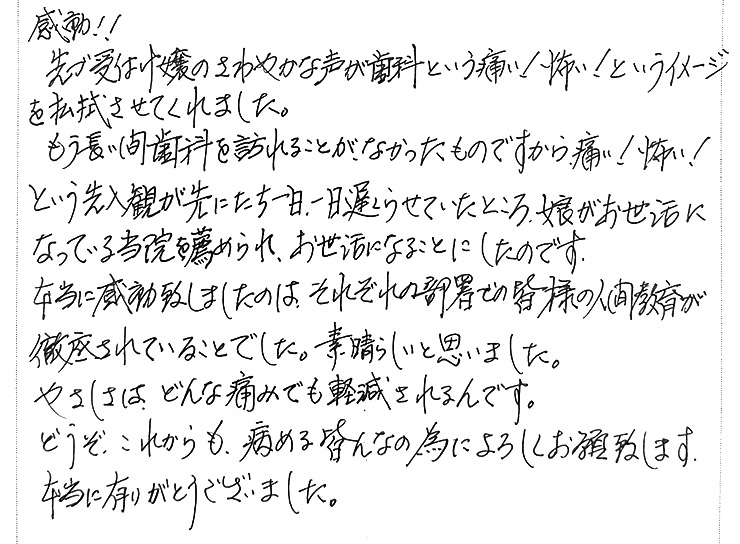 感動!!
先づ受付嬢のさわやかな声が歯科という痛い!怖い!というイメージ
を払拭させてくれました。
もう長い間歯科を訪れることが、なかったものですから、痛い!怖い!
という先入観が先にたち一日、一日遅らせていたところ、娘がお世話に
なっている当院を薦められ、お世話になることにしたのです。
本当に感動致しましたのは、それぞれの部署での皆様の人間教育が
徹底されていることでした。素晴らしいと思いました。
やさしさは、どんな痛みでも軽減されるんです。
どうぞ、これからも、病める皆んなの為によろしくお願致します。
本当に有りがとうございました。